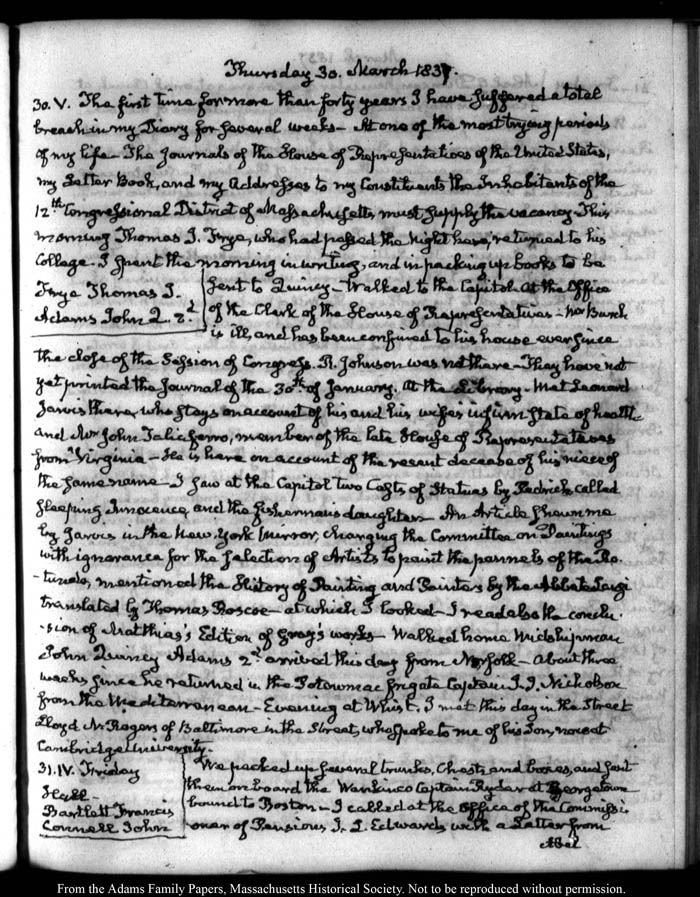 Thursday 30. March 1837.
30. V. The first time for more than forty years I have suffered a total
breach in my Diary for several weeks – At one of the most trying periods
of my life – The Journals of the House of Representatives of the United States,
my Letter Book, and my Addresses to my Constituents the Inhabitants of the
12th Congressional District of Massachusetts, must supply the vacancy – This
morning Thomas J. Frye, who had passed the Night here, returned to his
College. I spent the morning in writing, and in packing up books to be
Frye Thomas J.
Adams John Q. 2.d
sent to Quincy – Walked to the Capitol at the Office
of the Clerk of the House of Representatives – Mr Burch
is ill, and has been confined to his house ever since
the close of the Session of Congress. R. Johnson was not there – They have not
yet printed the Journal of the 30th of January. At the Library – Met Leonard
Jarvis there, who stays on account of his and his wife's infirm state of health
and Mr John Taliaferro, member of the late House of Representatives
from Virginia – He is here on account of the recent decease of his niece of
the same name – I saw at the Capitol two Casts of Statues by called
sleeping Innocence, and the fisherman's daughter – An Article shewn me
by Jarvis in the New-York Mirror, charging the Committee on Paintings
with ignorance for the selection of Artists to paint the pannels of the Ro-
-tundo, mentioned the History of Painting and Painters by the Abbate Luigi
translated by Thomas Roscoe – at which I looked – I read also the conclu-
-sion of Matthias's Edition of Gray's works – Walked home Midshipman
John Quincy Adams 2d arrived this day from Norfolk – About three
weeks since he returned in the Potowmac frigate Captain J. J. Nicholson
from the Mediterranean – Evening at Whist. I met this day in the Street
Lloyd N. Rogers of Baltimore in the Street, who spoke to me of his Son, now at
Cambridge University.
31. IV. Friday
Hall –
Bartlett Francis
Connell John
We packed up several trunks, Chests and boxes, and sent
them on board the Captain Ryder at Georgetown
bound to Boston – I called at the Office of the Commissi-
oner of Pensions J. L. Edwards with a Letter from
Abel
From the Adams Family Papers, Massachusetts Historical Society. Not to be reproduced without permission.